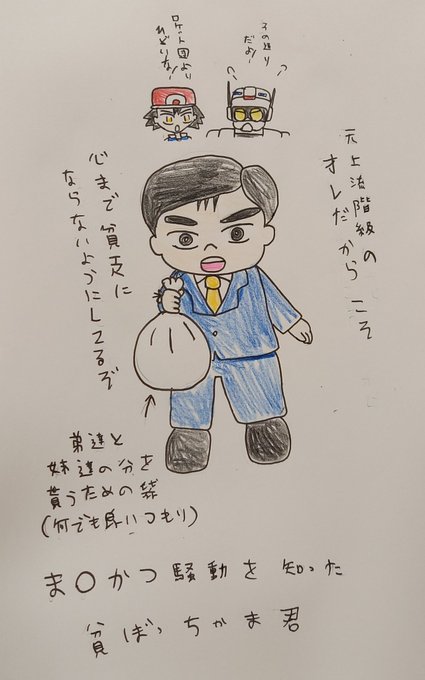 その通り
だよ!
ロケット団より
ひどいな!
元上流階級の
オレだからこそ
心まで貧乏に
ならないようにしてるぞ
弟達と
妹達の分を
貰うための袋
(何でも良いつもり)
ま〇かつ騒動を知った
貧ぼっちゃま君